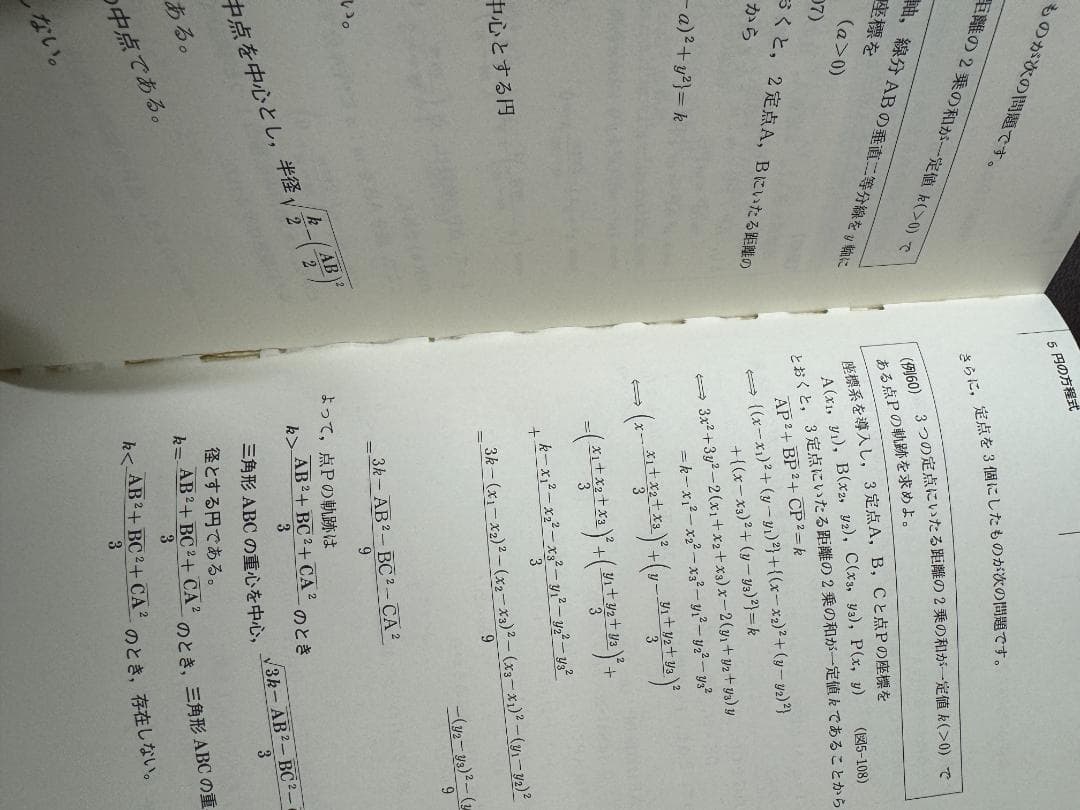 ものが次の問題です。
距離の2乗の和が一定値 k(>0) で
軸，線分ABの垂直二等分線を y 軸に
座標を
(a>0)
おくと，2定点A，Bにいたる距離の
から
-a)²+y²}=k
中心とする円
い。
中点を中心とし，半径√(k/2-(AB/2)²)
ある。
の中点である。
ない。
5 円の方程式
さらに，定点を3個にしたものが次の問題です。
(例60) 3つの定点にいたる距離の2乗の和が一定値 k(>0) で
ある点Pの軌跡を求めよ。
座標系を導入し，3定点A，B，Cと点Pの座標を
A(x₁, y₁)，B(x₂, y₂)，C(x₃, y₃)，P(x, y) (図5-108)
とおくと，3定点にいたる距離の2乗の和が一定値 k であることから
AP²+BP²+CP²=k
⟺{(x-x₁)²+(y-y₁)²}+{(x-x₂)²+(y-y₂)²}
+{(x-x₃)²+(y-y₃)²}=k
⟺3x²+3y²-2(x₁+x₂+x₃)x-2(y₁+y₂+y₃)y
=k-x₁²-x₂²-x₃²-y₁²-y₂²-y₃²
⟺(x-(x₁+x₂+x₃)/3)²+(y-(y₁+y₂+y₃)/3)²
=((x₁+x₂+x₃)/3)²+((y₁+y₂+y₃)/3)²+
+(k-x₁²-x₂²-x₃²-y₁²-y₂²-y₃²)/3
=(3k-(x₁-x₂)²-(x₂-x₃)²-(x₃-x₁)²-(y₁-y₂)²)/9
-(y₂-y₃)²-(
9
=(3k-AB²-BC²-CA²)/9
よって，点Pの軌跡は
k>(AB²+BC²+CA²)/3 のとき
三角形ABCの重心を中心，√(3k-AB²-BC²-)/3
径とする円である。
k=(AB²+BC²+CA²)/3 のとき，三角形ABCの重
k<(AB²+BC²+CA²)/3 のとき，存在しない。